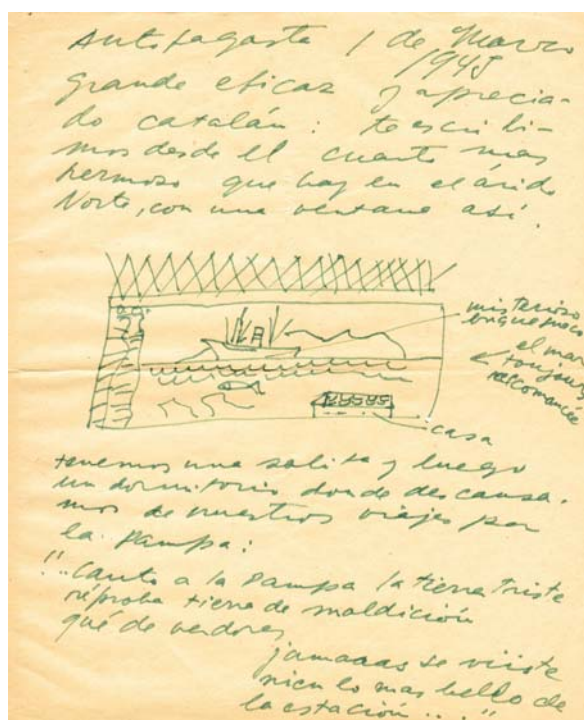 Antofagasta 1 de Marzo
1945
Grande eficaz y aprecia-
do catalán: te escribi-
mos desde el cuarto mas
hermoso que hay en el árido
Norte, con una ventana así.
misterioso
buque
el mar
toujours
recomancée
casa
tenemos una salita y luego
un dormitorio donde descansa-
mos de nuestros viajes por
la Pampa:
"..Canto a la Pampa la tierra triste
réproba tierra de maldición
que de verdores
jamaaas se viiste
ni en lo mas bello de
la estación...."